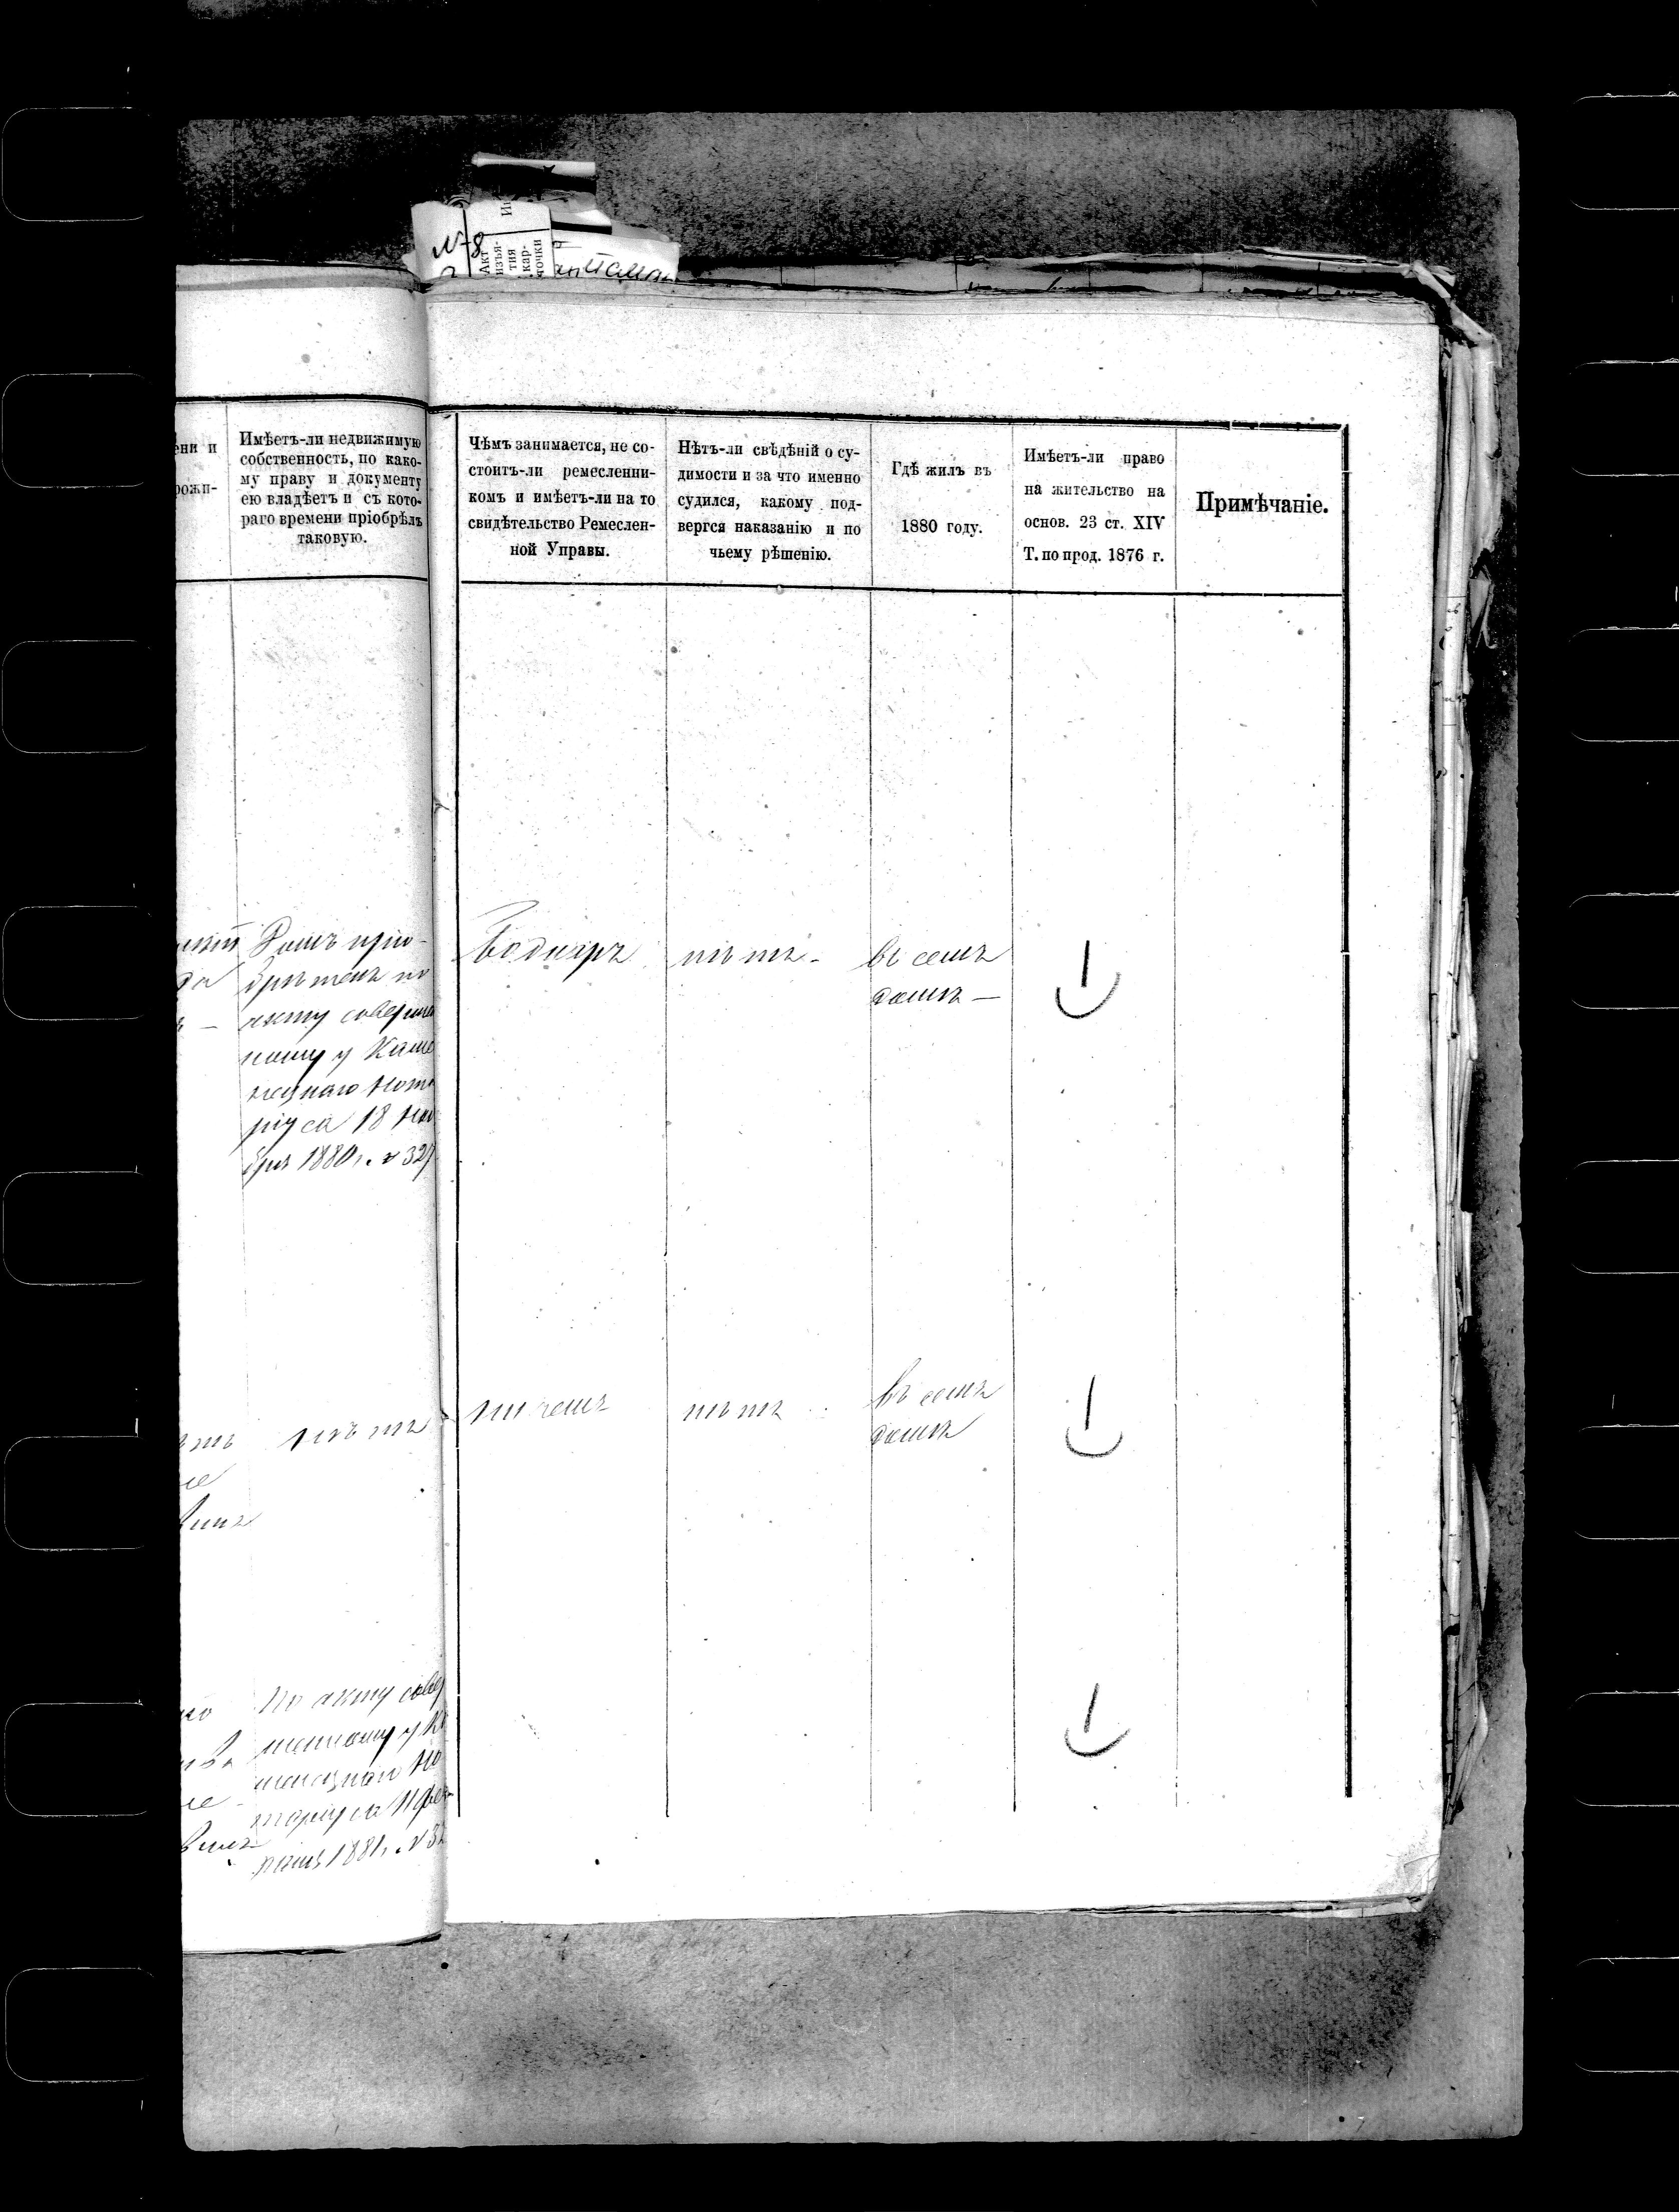 №8
Акт
изъя-
тия
кар-
точки
ени и
рожи-
Имѣетъ-ли недвижимую
собственность, по како-
му праву и документу
ею владѣетъ и съ кото-
раго времени пріобрѣлъ
таковую.
Чѣмъ занимается, не со-
стоитъ-ли ремесленни-
комъ и имѣетъ-ли на то
свидѣтельство Ремеслен-
ной Управы.
Нѣтъ-ли свѣдѣній о су-
димости и за что именно
судился, какому под-
вергся наказанію и по
чьему рѣшенію.
Гдѣ жилъ въ
1880 году.
Имѣетъ-ли право
на жительство на
основ. 23 ст. XIV
Т. по прод. 1876 г.
Примѣчаніе.
Домъ пріо-
брѣтенъ по
акту соверше
ному у Каме
нецнаго Нота
ріуса 18 Ноя
бря 1880 г. №
Боднаръ
нѣтъ -
въ семъ
домѣ —
нѣтъ
ни чемъ
нѣтъ
въ семъ
домѣ
По акту совер
шенному у К
менецнаго Но
таріуса 11 фев
раля 1881 г. №